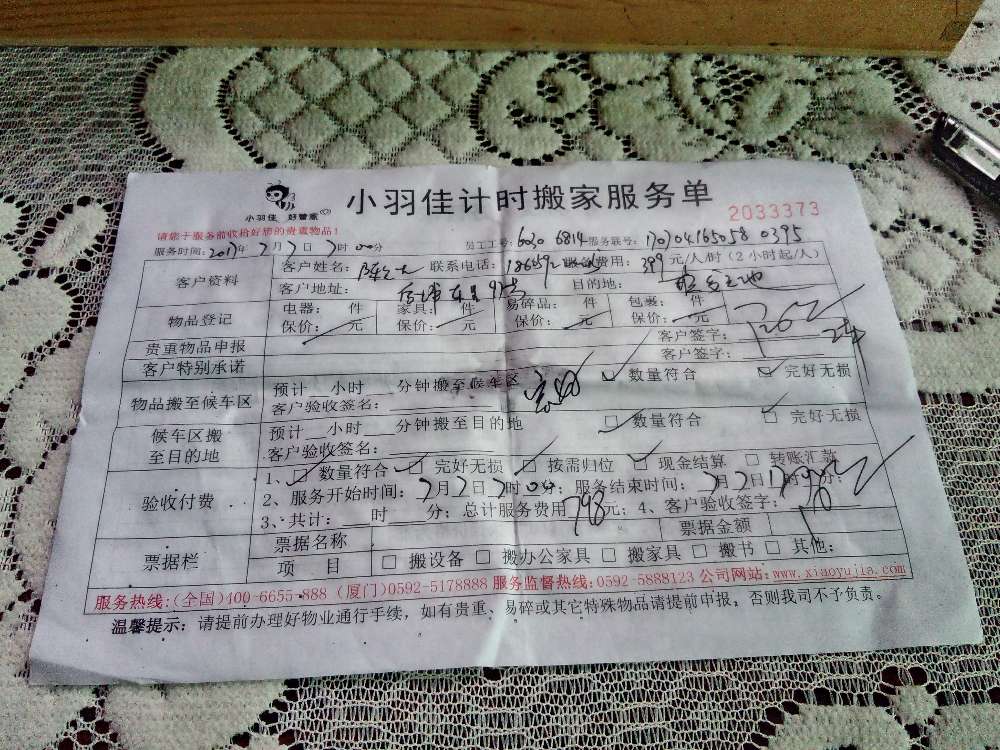 小羽佳 好管家
小羽佳计时搬家服务单
2033373
请您于服务前收拾好您的贵重物品!
服务时间:2017年2月2日 时00分 员工工号:6020 6814 服务联号:170204165058 0395
客户资料 客户姓名: 联系电话: 费用:399元/人/时(2小时起/人)
客户地址: 目的地:
物品登记 电器: 件 家具: 件 易碎品: 件 包裹: 件
保价: 元 保价: 元 保价: 元 保价: 元
贵重物品申报 客户签字:
客户特别承诺 客户签字:
物品搬至候车区 预计 小时 分钟搬至候车区 数量符合 完好无损
客户验收签名:
候车区搬至目的地 预计 小时 分钟搬至目的地 数量符合 完好无损
客户验收签名:
验收付费 1、 数量符合 完好无损 按需归位 现金结算 转账汇款
2、服务开始时间: 月 日 时 分;服务结束时间: 月 日 时 分;
3、共计: 时 分;总计服务费用798元;4、客户验收签字:
票据栏 票据名称 票据金额
项 目 搬设备 搬办公家具 搬家具 搬书 其他:
服务热线:(全国)400-6655-888 (厦门)0592-5178888 服务监督热线:0592-5888123 公司网站:www.xiaoyujia.com
温馨提示:请提前办理好物业通行手续,如有贵重、易碎或其它特殊物品请提前申报,否则我司不予负责。